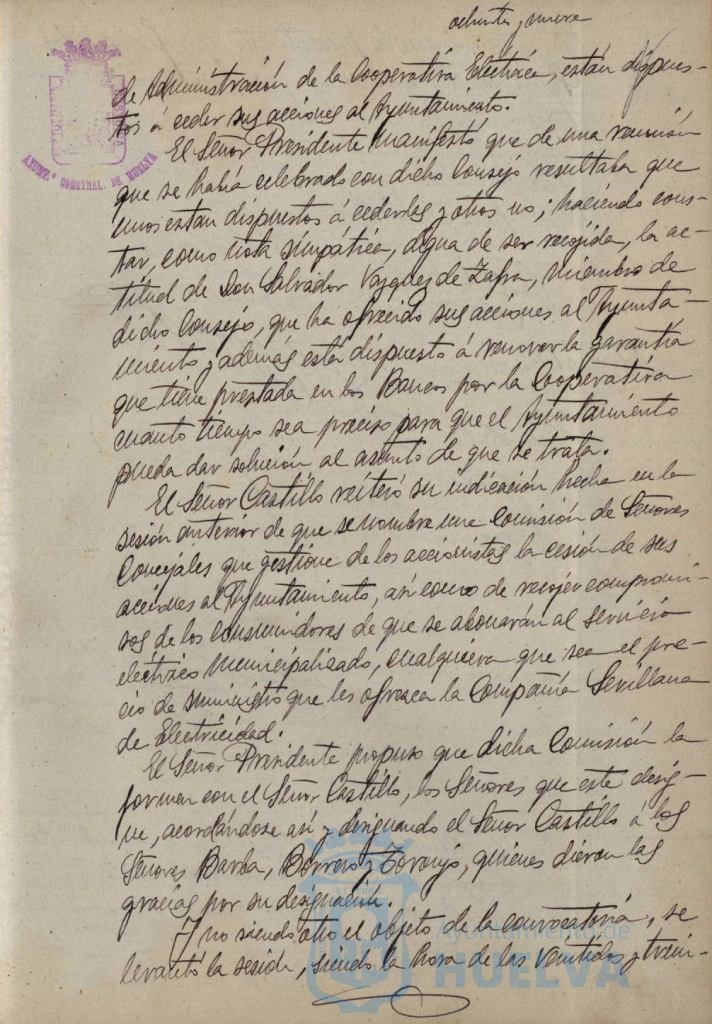 ochenta y nueve
de Administración de la Cooperativa Electrica, están dispues-
tos á ceder sus acciones al Ayuntamiento.
El Señor Presidente manifestó que de una reunión
que se había celebrado con dicho Consejo resultaba que
unos estan dispuestos á cederlas y otros no; haciendo cons-
tar, como nota simpática, digna de ser recojida, la ac-
titud de Don Salvador Vazquez de Zafra, miembro de
dicho Consejo, que ha ofrecido sus acciones al Ayunta-
miento y además está dispuesto á renovar la garantía
que tiene prestada en los Bancos por la Cooperativa
cuanto tiempo sea preciso para que el Ayuntamiento
pueda dar solución al asunto de que se trata.
El Señor Castillo reiteró su indicación hecha en la
sesión anterior de que se nombre una Comisión de Señores
Concejales que gestione de los accionistas la cesión de sus
acciones al Ayuntamiento, así como de recojer compromi-
sos de los consumidores de que se abonarán al servicio
electrico municipalizado, cualquiera que sea el pre-
cio de suministro que les ofrezca la Compañía Sevillana
de Electricidad.
El Señor Presidente propuso que dicha Comisión la
formen con el Señor Castillo, los Señores que este desig-
ne, acordándose así y designando el Señor Castillo á los
Señores Barba, Borrero y Toronjo, quienes dieron las
gracias por su designación.
Y no siendo otro el objeto de la convocatoria, se
levantó la sesión, siendo la hora de las veintidos y trein-
AYUNT.º COSTNAL. DE HUELVA
Ayuntamiento de
HUELVA